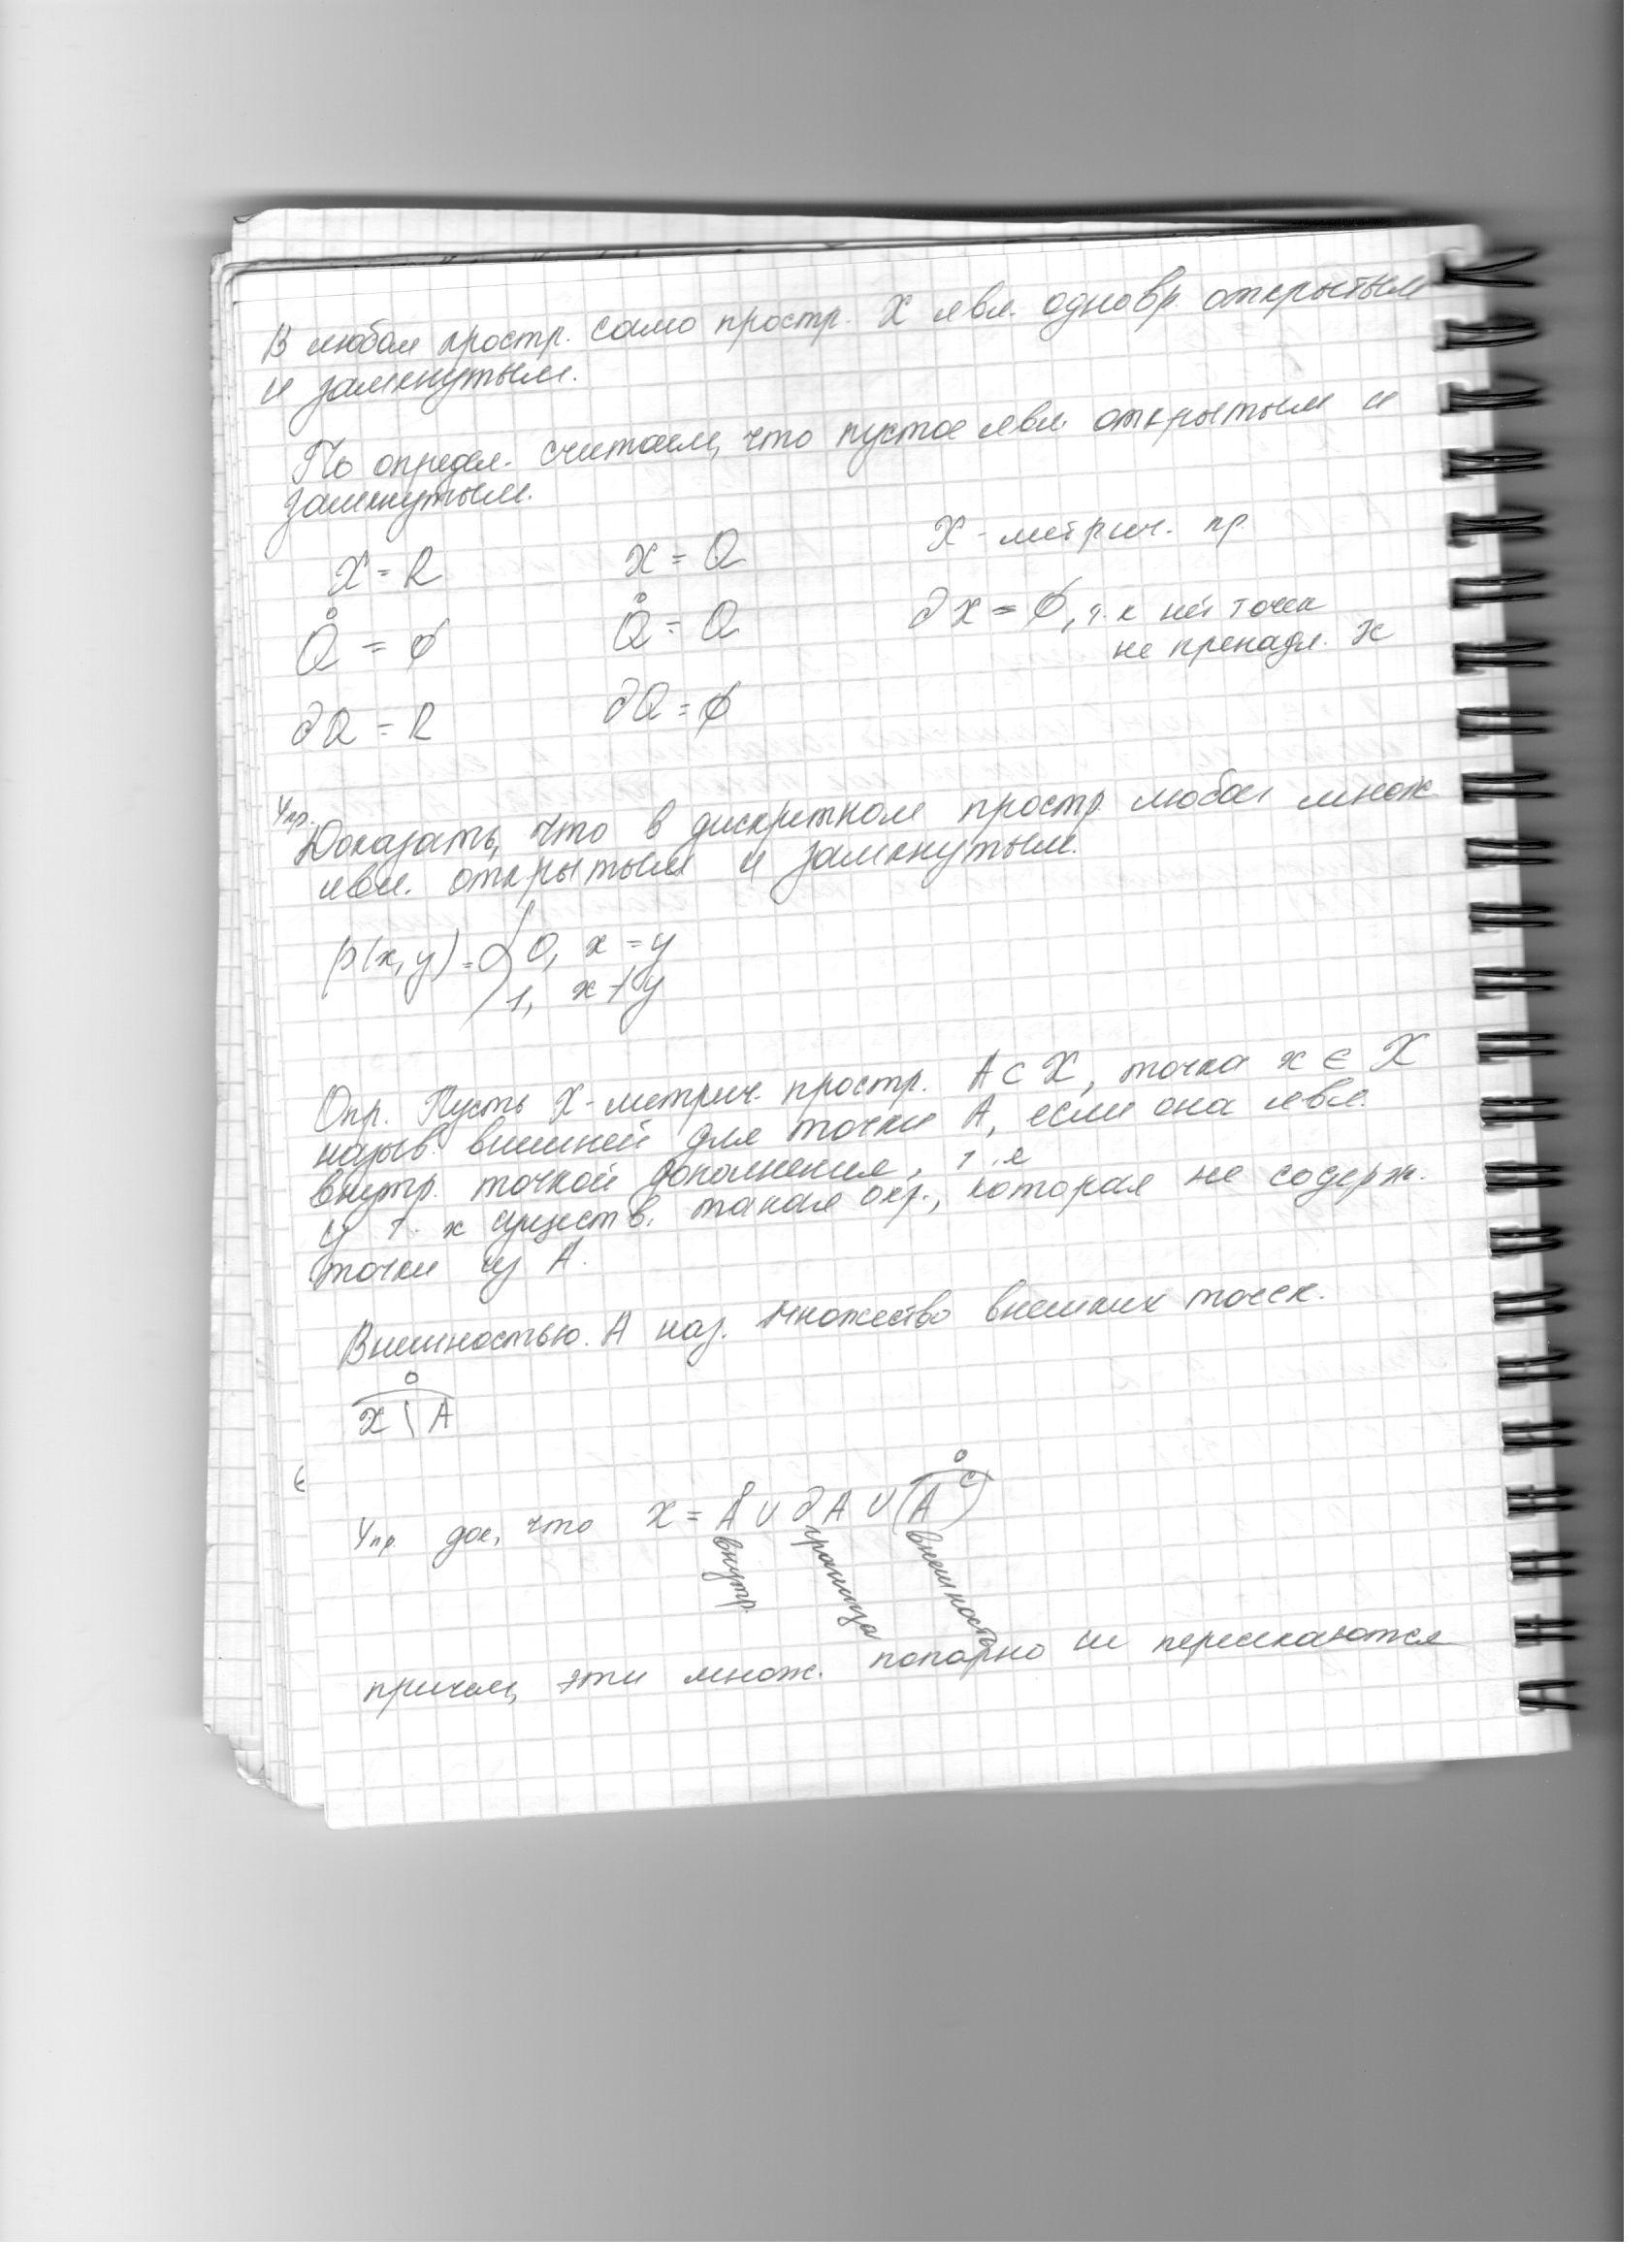 В любом простр. само простр. X явл. одновр. открытым
и замкнутым.
По определ. считаем, что пустое явл. открытым и
замкнутым.
X = R X = Q X - метрич. пр.
Q̊ = ∅ Q̊ = Q ∂X = ∅, т.к нет точек
не пренадл. X
∂Q = R ∂Q = ∅
Упр. Доказать, что в дискретном простр. любое множ
явл. открытым и замкнутым.
ρ(x, y) = { 0, x = y
1, x ≠ y
Опр. Пусть X - метрич. простр. A ⊂ X, точка x ∈ X
назыв. внешней для точки A, если она явл.
внутр. точкой дополнения, т.е
у т. x существ. такая окр., которая не содерж.
точки из A.
Внешностью. A наз. множество внешних точек.
(X \ A)°
Упр. док, что X = Å ∪ ∂A ∪ (Aᶜ)°
внутр. граница внешность
причем, эти множ. попарно не пересекаются